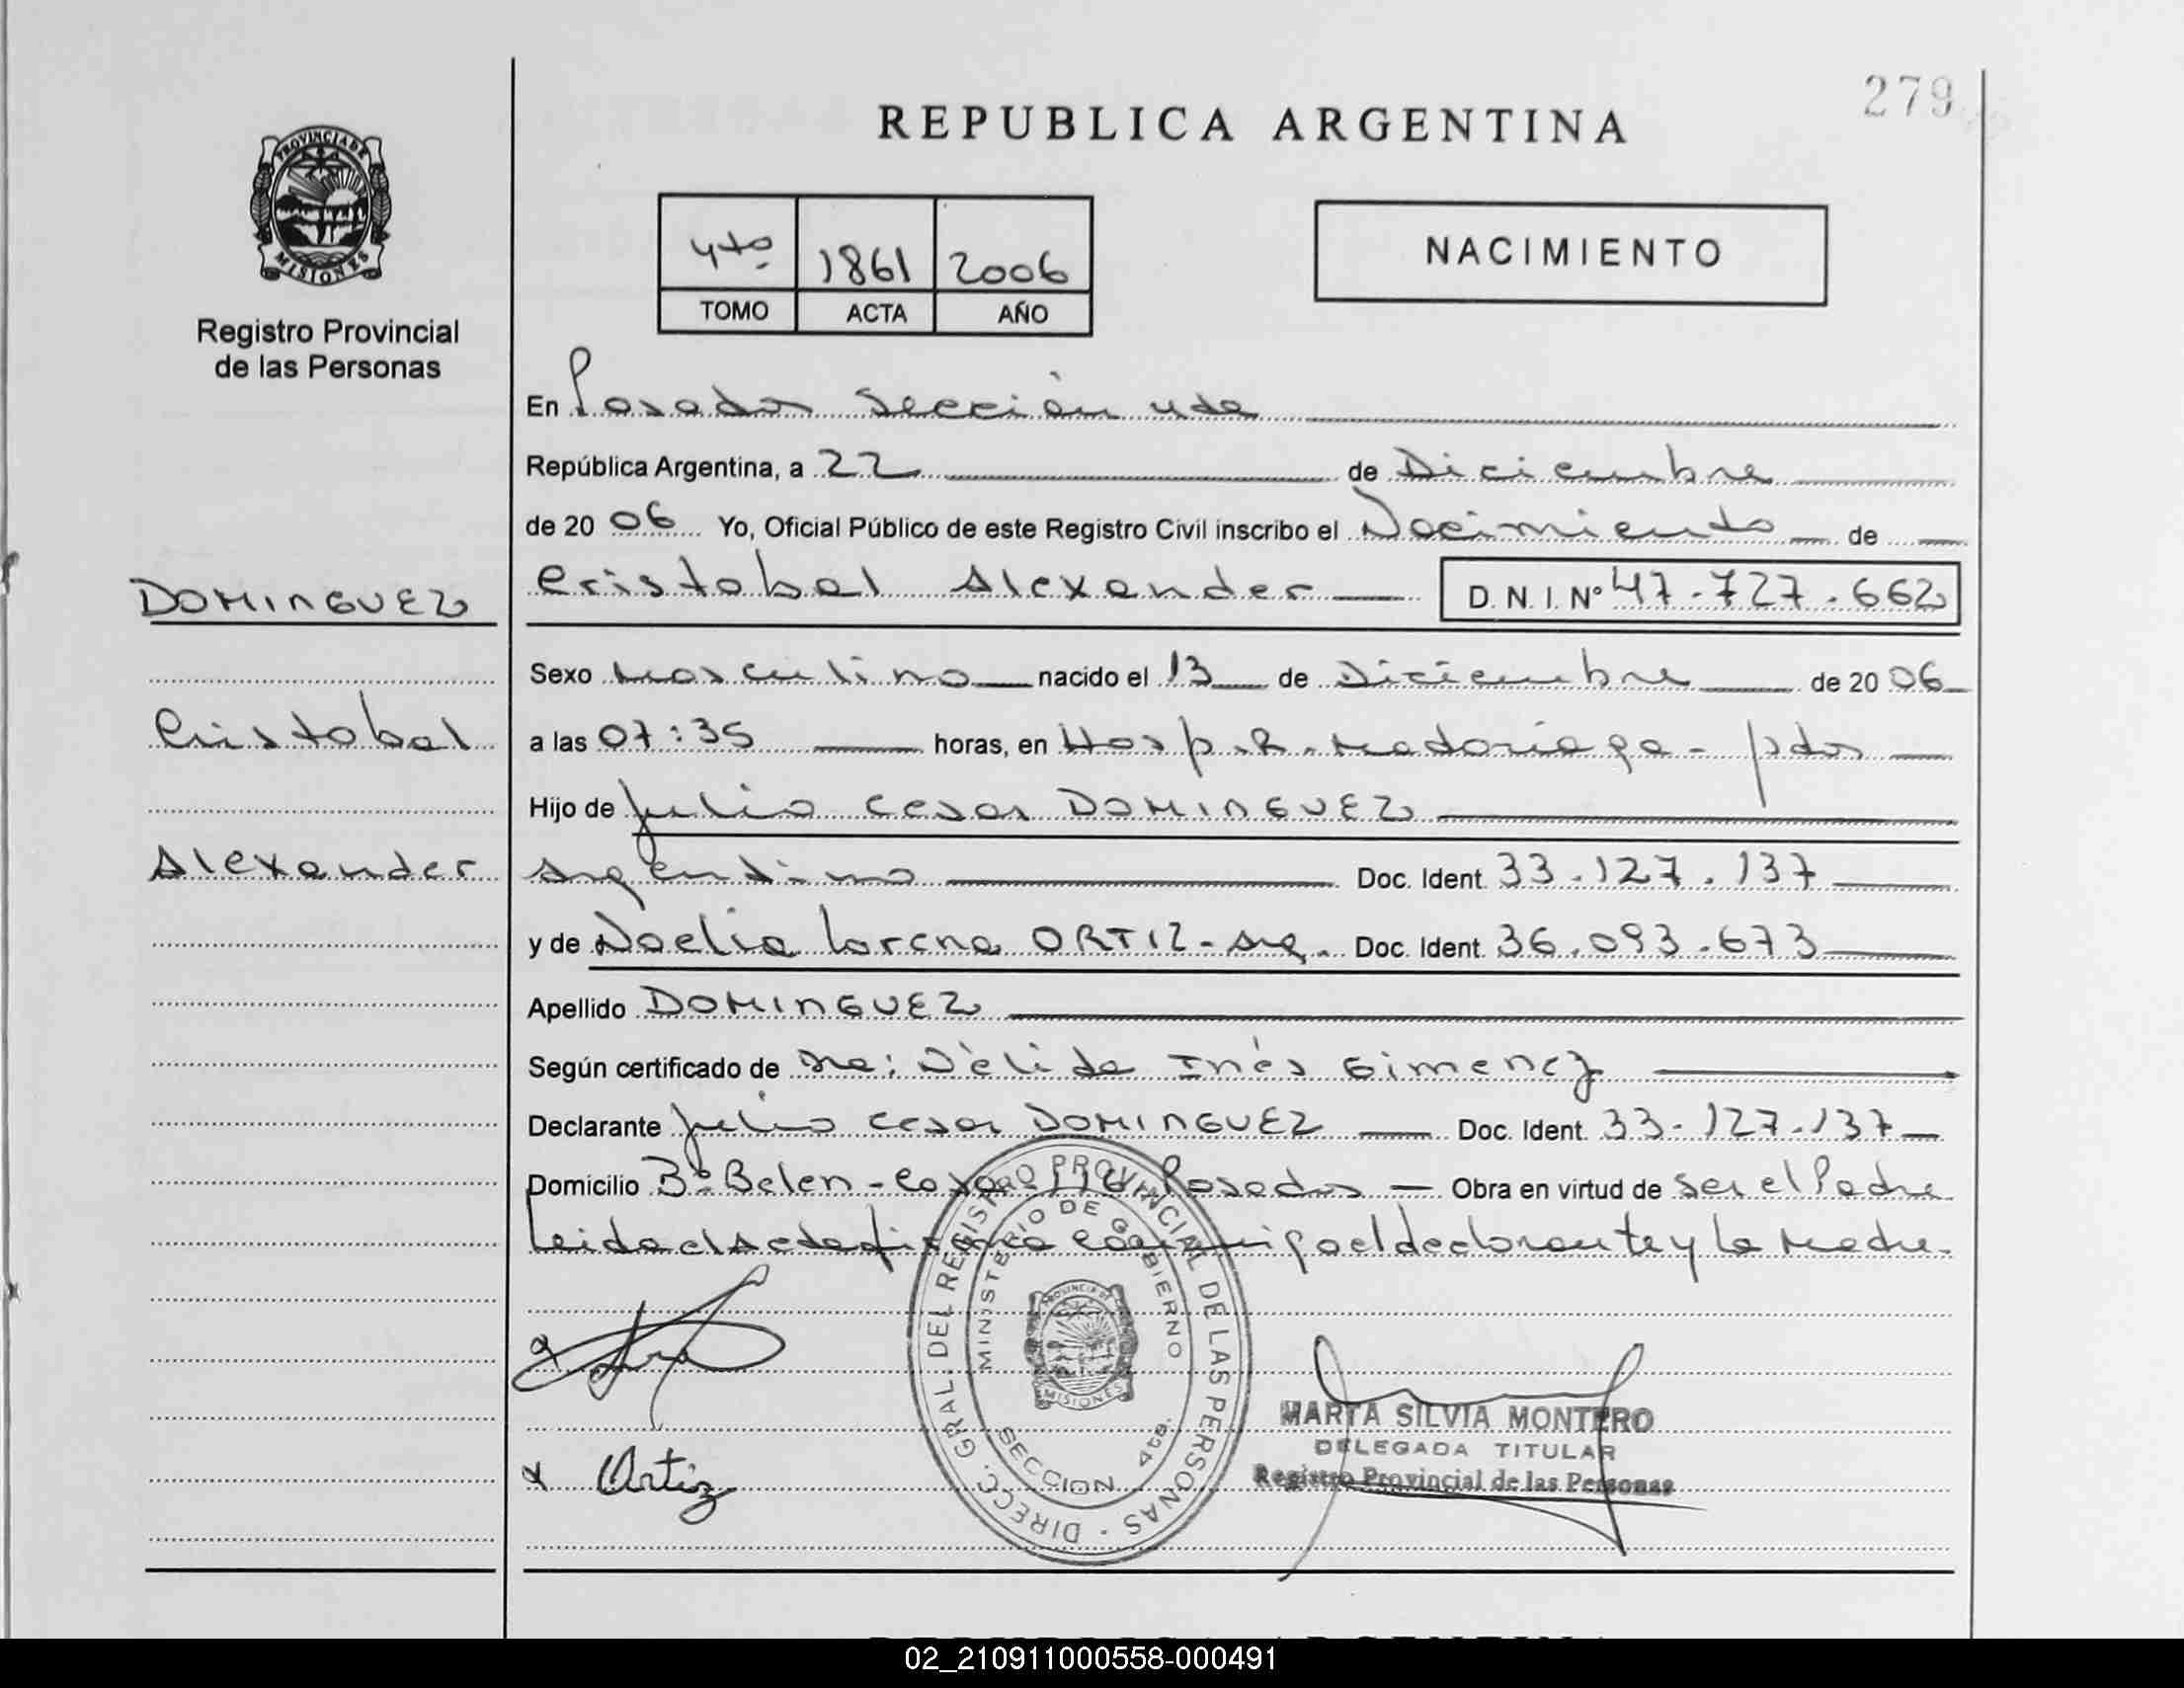 279
REPUBLICA ARGENTINA
PROVINCIA DE
MISIONES
Registro Provincial
de las Personas
4to 1861 2006
TOMO ACTA AÑO
NACIMIENTO
En Posadas Sección 4ta
República Argentina, a 22 de Diciembre
de 20 06 Yo, Oficial Público de este Registro Civil inscribo el Nacimiento de
DOMINGUEZ
Cristobal Alexander D.N.I. Nº 47.727.662
Sexo Masculino nacido el 13 de Diciembre de 20 06
Cristobal
a las 07:35 horas, en Hosp. R. Madariaga - pdas
Hijo de Julio Cesar DOMINGUEZ
Alexander
Argentino Doc. Ident. 33.127.137
y de Noelia Lorena ORTIZ - Arg. Doc. Ident. 36.093.673
Apellido DOMINGUEZ
Según certificado de Dra: Nélida Inés Gimenez
Declarante Julio Cesar DOMINGUEZ Doc. Ident. 33.127.137
Domicilio Bº Belen - Casa 116 Posadas Obra en virtud de ser el Padre
Leida el Acta firma conmigo el declarante y la Madre.
DIRECC. GRAL. DEL REGISTRO PROVINCIAL DE LAS PERSONAS
MINISTERIO DE GOBIERNO
PROVINCIA DE
MISIONES
SECCION 4ta.
MARTA SILVIA MONTERO
DELEGADA TITULAR
Registro Provincial de las Personas
x Ortiz
02_210911000558-000491